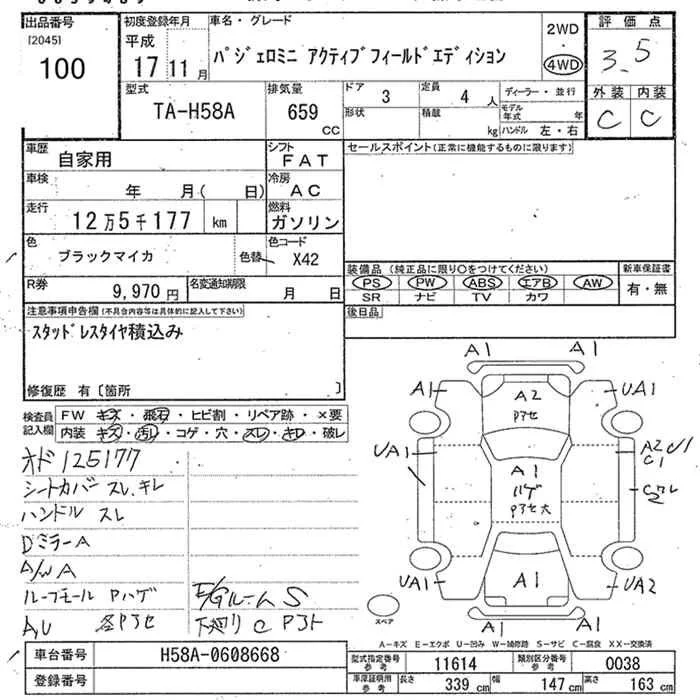 出品番号
[2045]
100
初度登録年月
平成
17 11 月
車名・グレード
パジェロミニ アクティブフィールドエディション
2WD
・
4WD
評価点
3.5
外装 内装
C C
型式
TA-H58A
排気量
659
CC
ドア 3
定員 4 人
形状
積載 kg
ディーラー・並行
モデル年式 年
ハンドル 左・右
車歴
自家用
シフト
FAT
車検
年 月( 日)
冷房
AC
走行
12万5千177 km
燃料
ガソリン
色
ブラックマイカ
色替
色コード
X42
R券
9,970 円
名変通知期限
月 日
セールスポイント(正常に機能するものに限ります)
装備品 (純正品に限り〇をつけてください)
PS PW ABS エアB AW
SR ナビ TV カワ
新車保証書
有・無
後日品
注意事項申告欄(不具合内容等は具体的に記入して下さい)
スタッドレスタイヤ積込み
修復歴 有〔箇所 〕
検査員
記入欄
FW キズ・飛石・ヒビ割・リペア跡・×要
内装 キズ・汚レ・コゲ・穴・スレ・キレ・破レ
オド125177
シートカバー スレ、キレ
ハンドル スレ
Dミラー A
A/W A
ルーフモール Pハゲ
A,U 各Pアセ
E/Gルーム S
下廻り C Pアト
A1 A1
A1 A2 UA1
Pアセ
UA1 A1 A2 U1
C1
ハゲ
Pアセ大
UA1 A1 UA2
A1 A1
スペア
A-キズ E-エクボ U-凹み W-補修跡 S-サビ C-腐食 XX-交換済
車台番号
H58A-0608668
登録番号
型式指定番号
参考
11614
類別区分番号
参考
0038
車庫証明用
参考
長さ 339 cm 幅 147 cm 高さ 163 cm